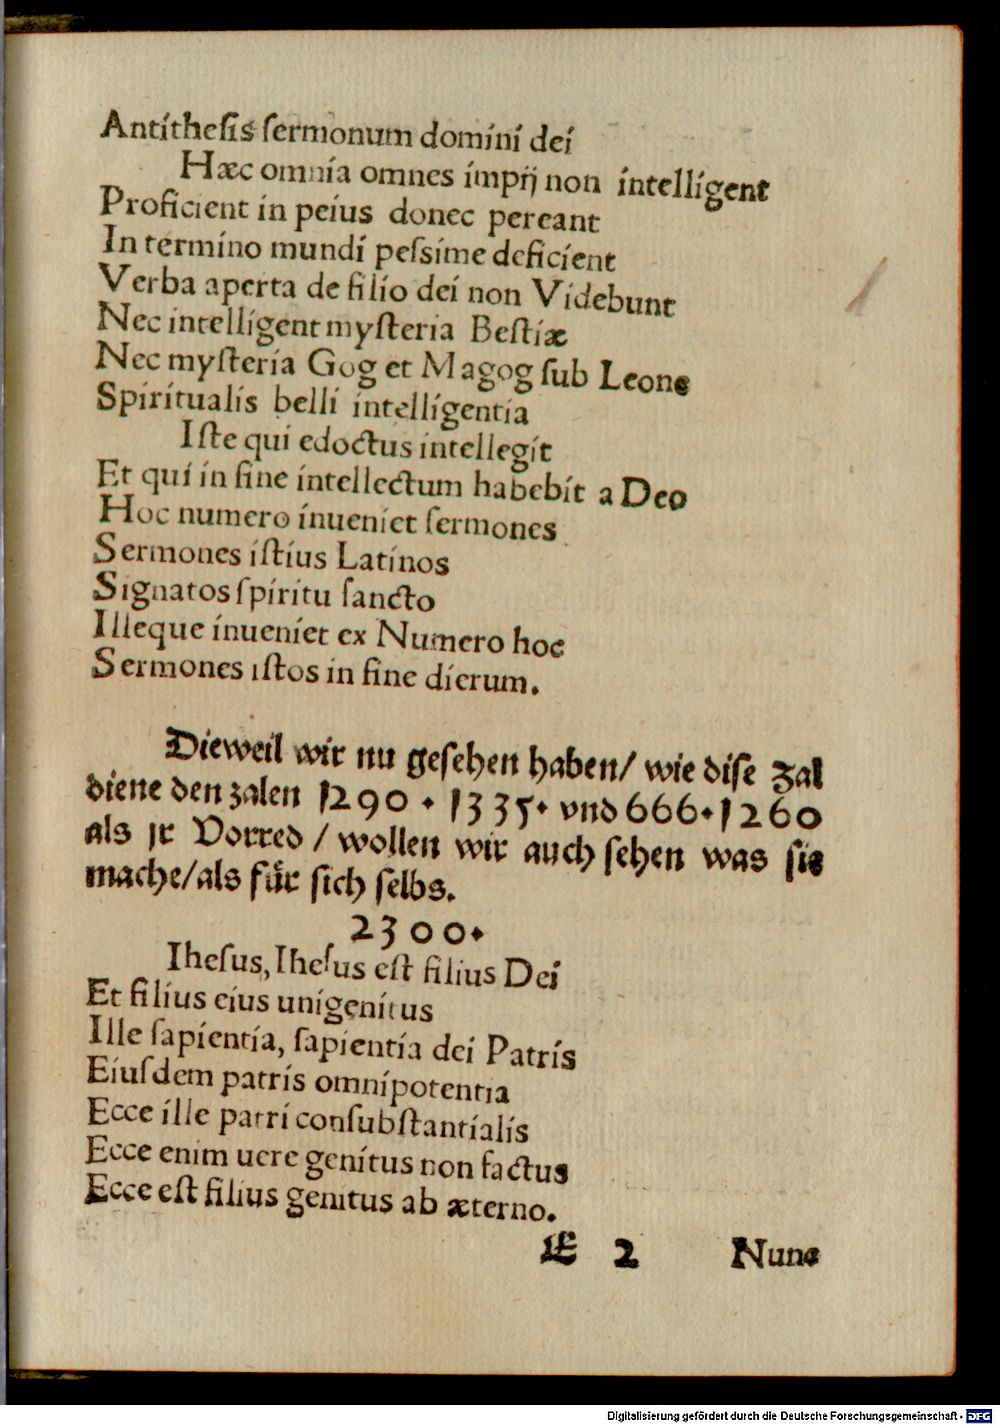 Antithesis ſermonum domini dei
Hæc omnia omnes impij non intelligent
Proficient in peius donec pereant
In termino mundi peſsime deficient
Verba aperta de filio dei non Videbunt
Nec intelligent myſteria Beſtiæ
Nec myſteria Gog et Magog ſub Leone
Spiritualis belli intelligentia
Iſte qui edoctus intellegit
Et qui in fine intellectum habebit a Deo
Hoc numero inueniet ſermones
Sermones iſtius Latinos
Signatos ſpiritu ſancto
Illeque inueniet ex Numero hoc
Sermones iſtos in fine dierum.
Dieweil wir nu geſehen haben/ wie diſe zal
diene den zalen 1290 . 1335. vnd 666. 1260
als jr Vorred / wollen wir auch ſehen was ſie
mache/als fuͤr ſich ſelbs.
2300.
Iheſus, Iheſus eſt filius Dei
Et filius eius unigenitus
Ille ſapientia, ſapientia dei Patris
Eiuſdem patris omnipotentia
Ecce ille patri conſubſtantialis
Ecce enim uere genitus non factus
Ecce eſt filius genitus ab æterno.
E 2 Nunc
Digitalisierung gefördert durch die Deutsche Forschungsgemeinschaft - DFG